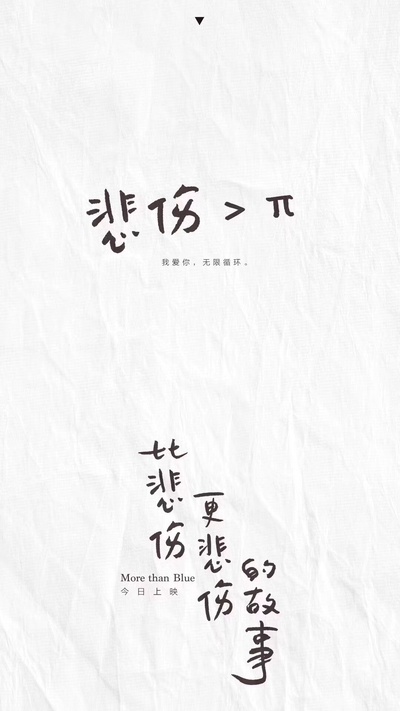 悲伤 > π
我爱你，无限循环。
比悲伤
更悲伤
的故事
More than Blue
今日上映